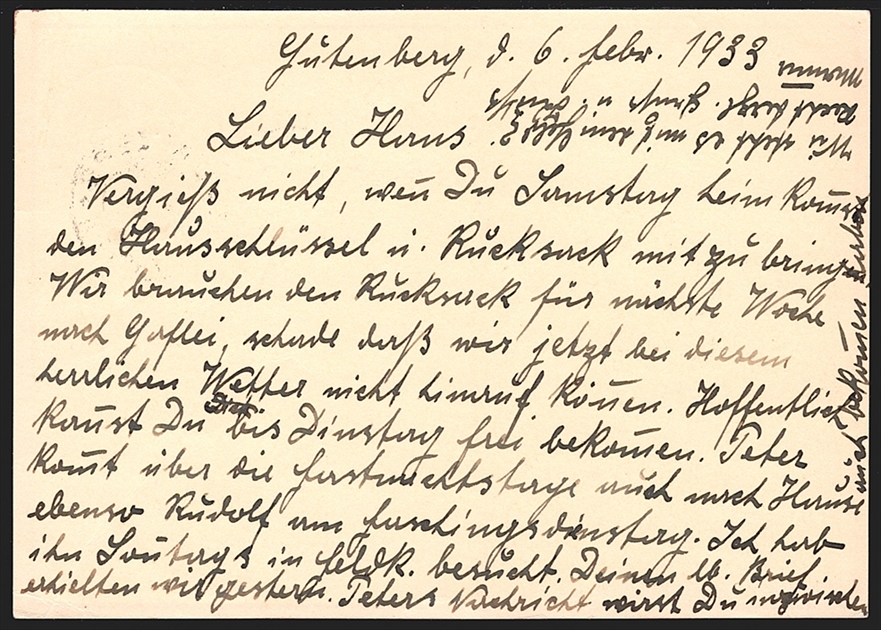 Gutenberg, d. 6. Febr. 1933
Lieber Hans
Vergieß nicht, weñ Du Samstag heim kom̃st
den Hausschlüssel u. Rucksack mit zu bringen
Wir brauchen den Rucksack für nächste Woche
nach Gaflei, schade daß wir jetzt bei diesem
herrlichen Wetter nicht hinauf kön̄en. Hoffentlich
kan̄st Du Dich bis Dinstag frei bekom̄en. Peter
kom̄t über die Fastnachtstage auch nach Hause
ebenso Rudolf am Faschingsdinstag. Ich hab
ihn Son̄tags in Feldk. besucht. Deinen lb. Brief
erhielten wir gestern. Peters Nachricht wirst Du inzwischen
auch bekom̄en haben
Mama